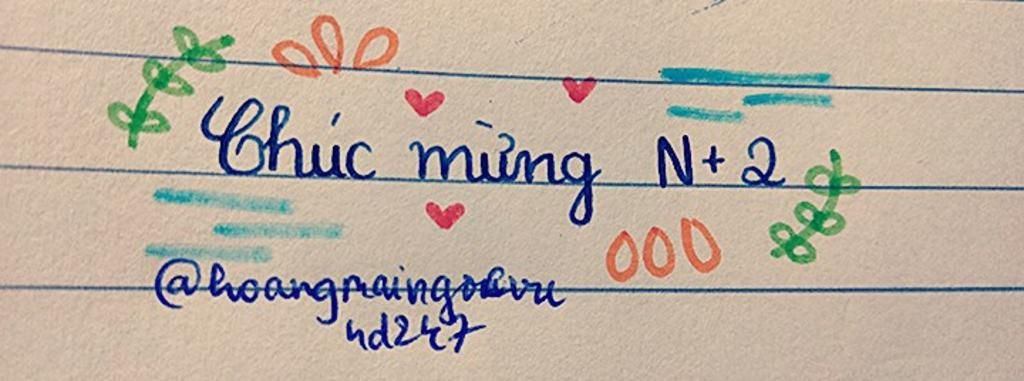 Chúc mừng N+2
@hoangmaingocvu
hd247